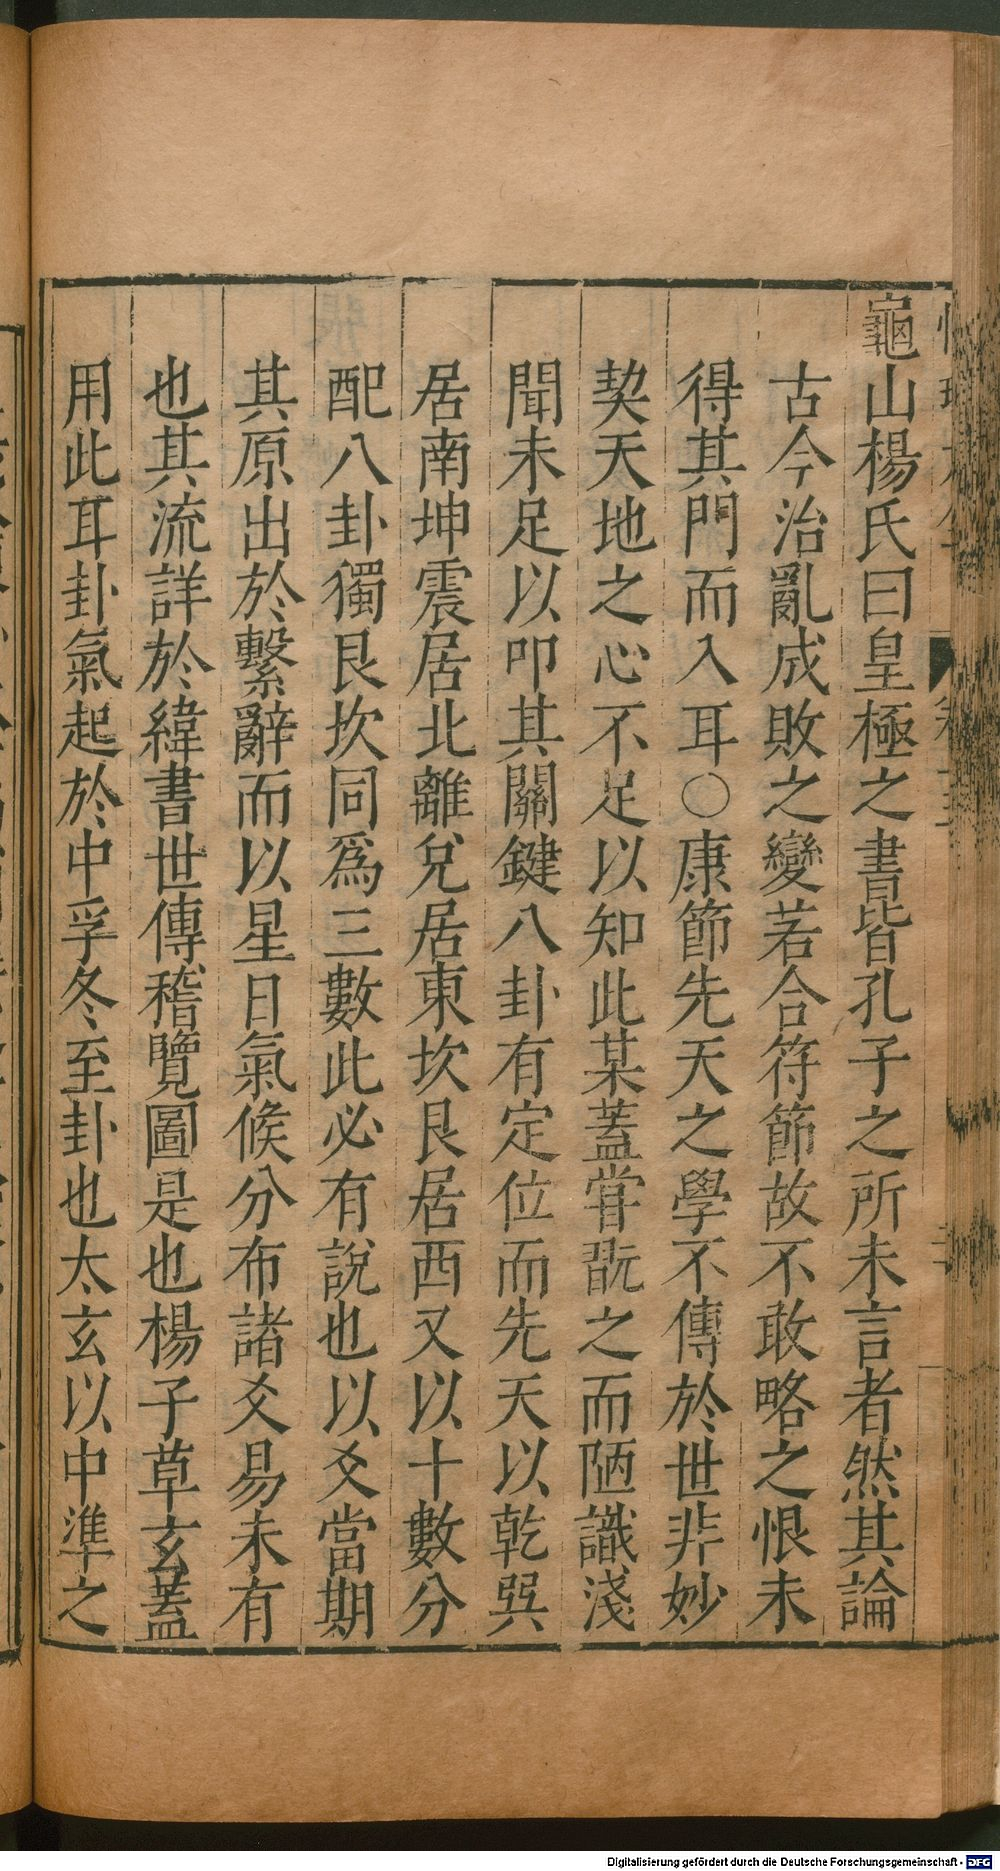 龜山楊氏曰皇極之書皆孔子之所未言者然其論
古今治亂成敗之變若合符節故不敢略之恨未
得其門而入耳○康節先天之學不傳於世非妙
契天地之心不足以知此某蓋嘗翫之而陋識淺
聞未足以叩其關鍵八卦有定位而先天以乾巽
居南坤震居北離兌居東坎艮居西又以十數分
配八卦獨艮坎同爲三數此必有說也以爻當期
其原出於繫辭而以星日氣候分布諸爻易未有
也其流詳於緯書世傳稽覽圖是也楊子草玄蓋
用此耳卦氣起於中孚冬至卦也太玄以中準之
Digitalisierung gefördert durch die Deutsche Forschungsgemeinschaft - DFG